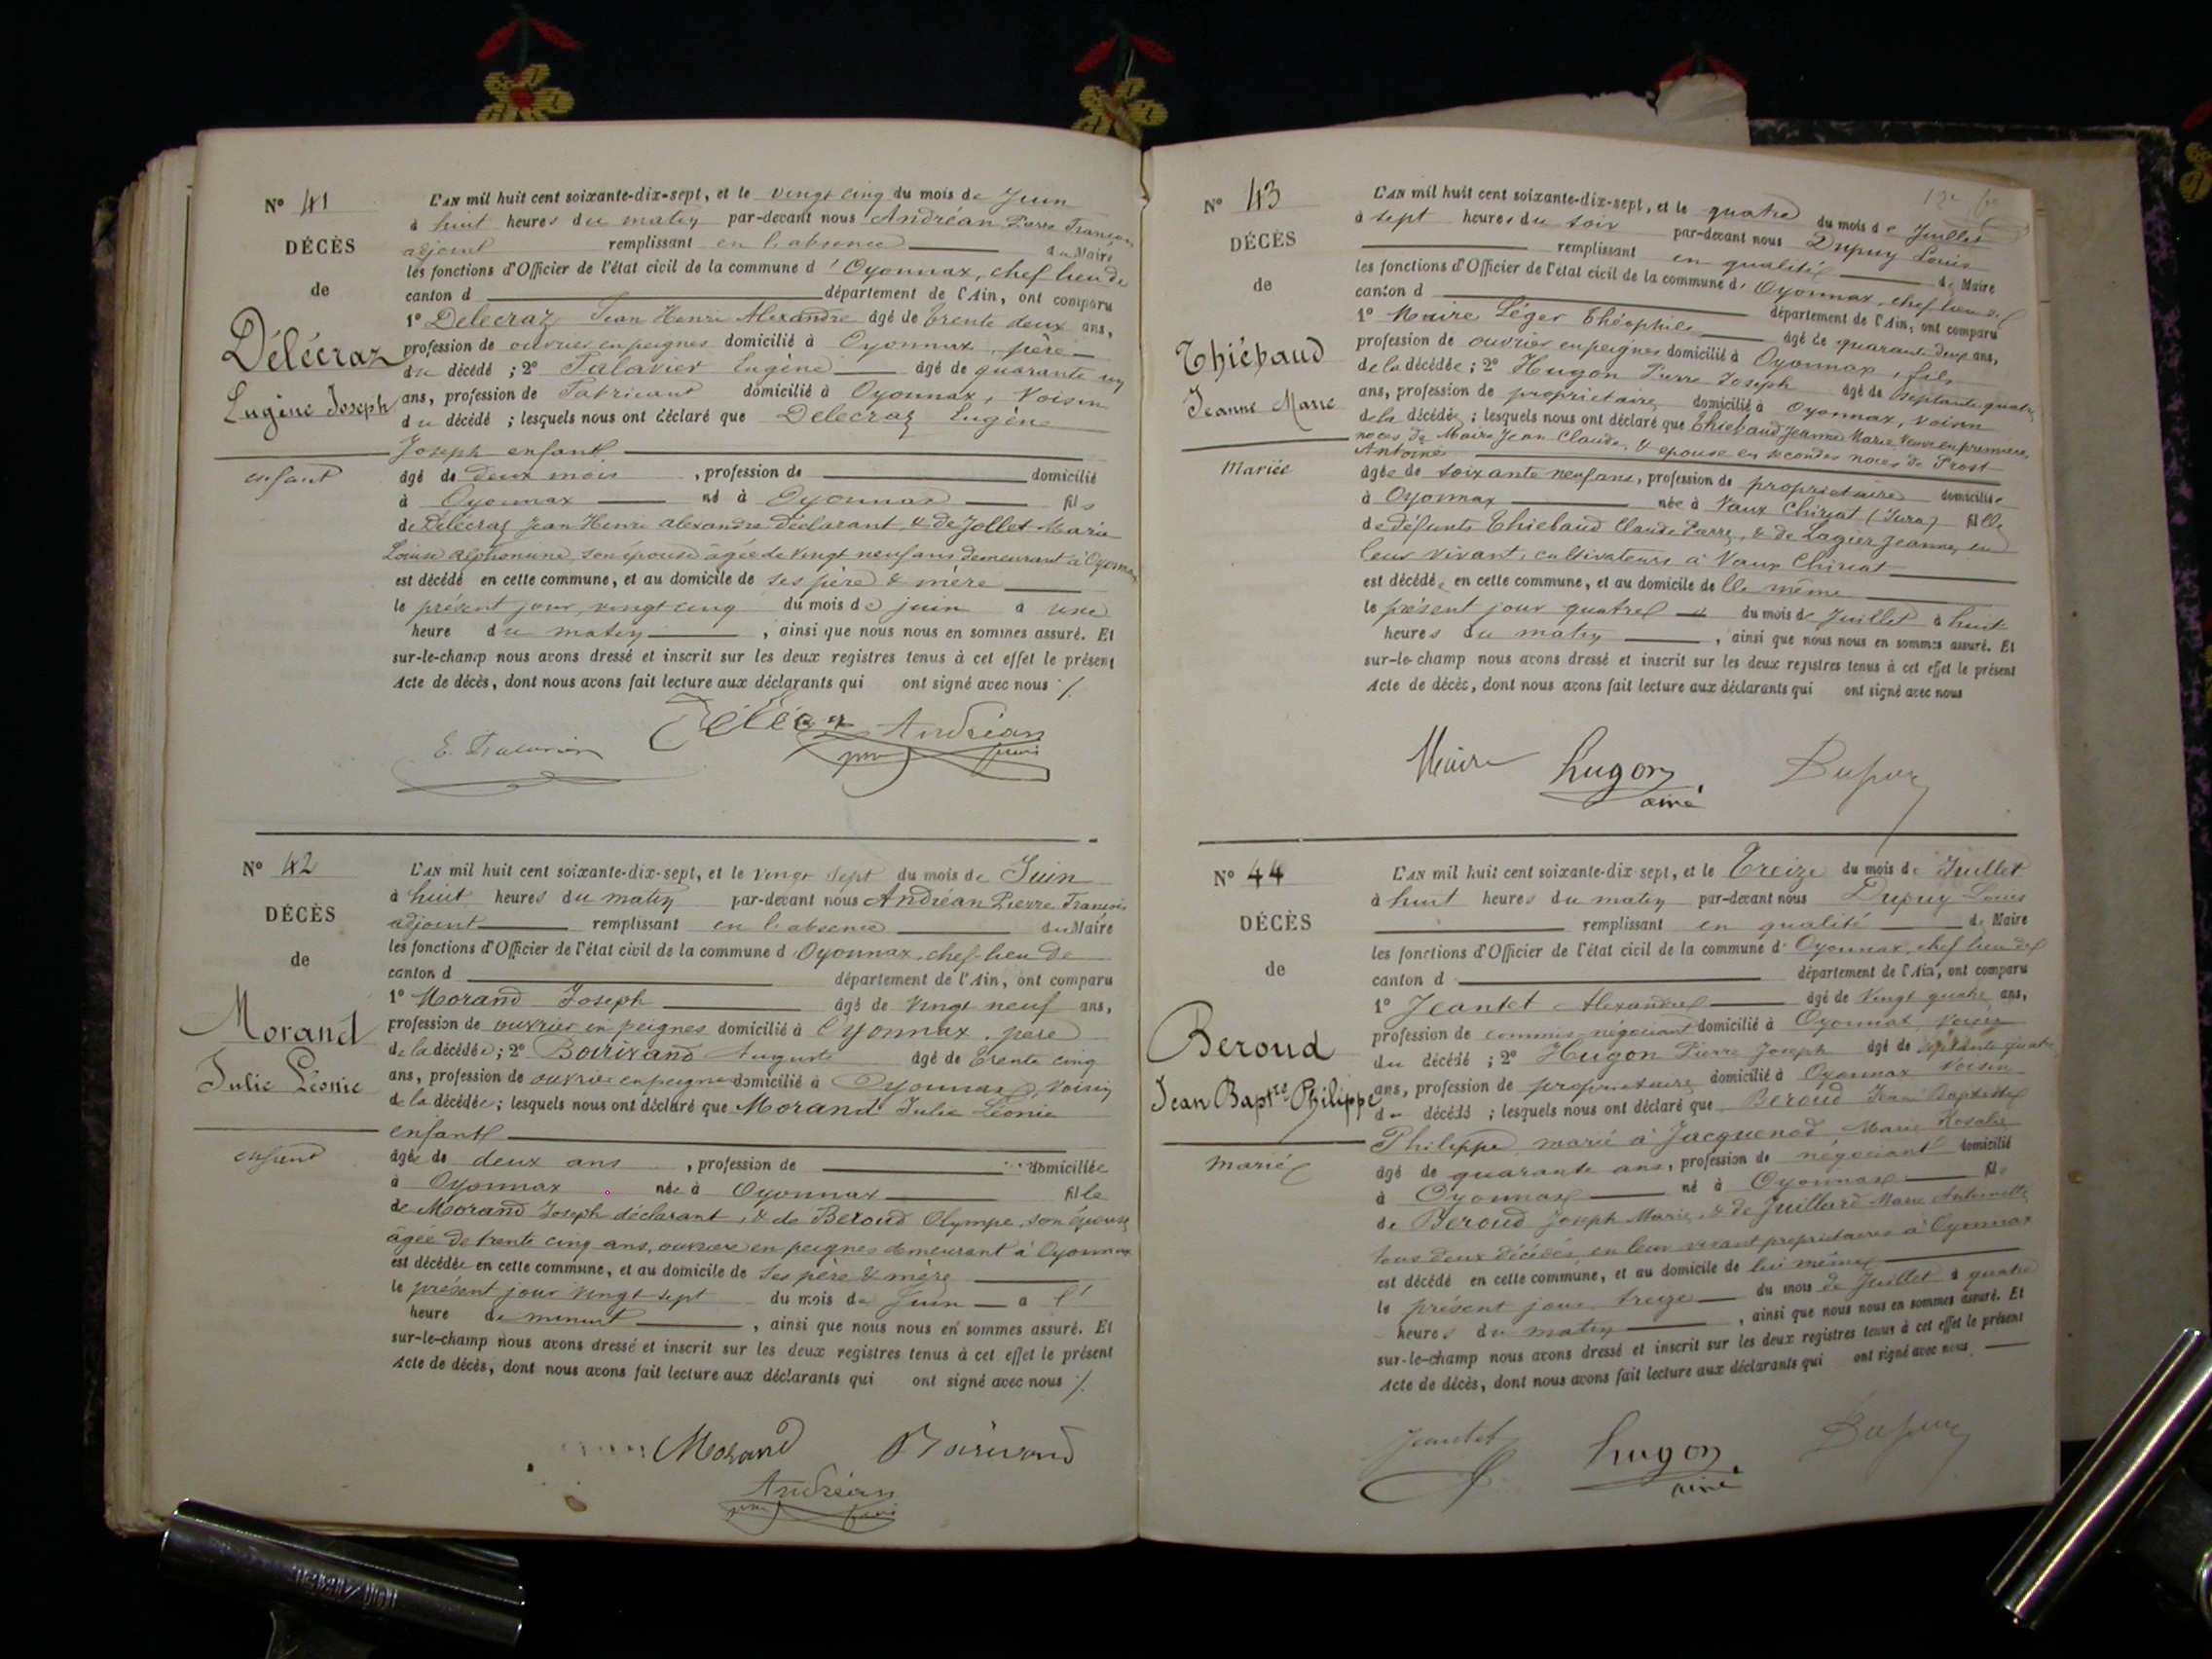 N° 41
DÉCÈS
de
Délécraz
Eugène Joseph
enfant
L'AN mil huit cent soixante-dix-sept, et le vingt cinq du mois de Juin
à huit heures du matin par-devant nous Andréan Pierre François
adjoint remplissant en l'absence du Maire
les fonctions d'Officier de l'état civil de la commune d'Oyonnax, chef lieu de
canton d département de l'Ain, ont comparu
1° Delecraz Jean Henri Alexandre âgé de trente deux ans,
profession de ouvrier en peignes domicilié à Oyonnax, père
du décédé ; 2° Talavier Eugène âgé de quarante un
ans, profession de Fabricant domicilié à Oyonnax, Voisin
du décédé ; lesquels nous ont déclaré que Delecraz Eugène
Joseph enfant
âgé de deux mois, profession de domicilié
à Oyonnax né à Oyonnax fils
de Delécraz Jean Henri alexandre déclarant & de Jollet Marie
Louise alphonsine, son épouse âgée de vingt neuf ans demeurant à Oyonnax
est décédé en cette commune, et au domicile de ses père & mère
le présent jour, vingt cinq du mois de juin à une
heure du matin, ainsi que nous nous en sommes assuré. Et
sur-le-champ nous avons dressé et inscrit sur les deux registres tenus à cet effet le présent
Acte de décès, dont nous avons fait lecture aux déclarants qui ont signé avec nous ./.
Andréan
N° 42
DÉCÈS
de
Morand
Julie Léonie
enfant
L'AN mil huit cent soixante-dix-sept, et le vingt sept du mois de Juin
à huit heures du matin par-devant nous Andréan Pierre François
adjoint remplissant en l'absence du Maire
les fonctions d'Officier de l'état civil de la commune d Oyonnax, chef-lieu de
canton d département de l'Ain, ont comparu
1° Morand Joseph âgé de Vingt neuf ans,
profession de ouvrier en peignes domicilié à Oyonnax, père
de la décédée ; 2° Boirivand Auguste âgé de trente cinq
ans, profession de ouvrier en peignes domicilié à Oyonnax, voisin
de la décédée ; lesquels nous ont déclaré que Morand Julie Léonie
enfant
âgée de deux ans, profession de domiciliée
à Oyonnax née à Oyonnax fille
de Morand Joseph déclarant, & de Beroud Olympe, son épouse
âgée de trente cinq ans, ouvrière en peignes demeurant à Oyonnax
est décédée en cette commune, et au domicile de ses père & mère
le présent jour vingt sept du mois de Juin à l'
heure de minuit, ainsi que nous nous en sommes assuré. Et
sur-le-champ nous avons dressé et inscrit sur les deux registres tenus à cet effet le présent
Acte de décès, dont nous avons fait lecture aux déclarants qui ont signé avec nous ./.
Morand Boirivand
Andréan
N° 43
DÉCÈS
de
Thiébaud
Jeanne Marie
Mariée
L'AN mil huit cent soixante-dix-sept, et le quatre du mois de Juillet
à sept heures du soir par-devant nous Dupuy Louis
remplissant en qualité de Maire
les fonctions d'Officier de l'état civil de la commune d'Oyonnax, chef lieu de
canton d département de l'Ain, ont comparu
1° Maire Léger Théophile âgé de quarante deux ans,
profession de ouvrier en peignes domicilié à Oyonnax, fils
de la décédée ; 2° Hugon Pierre Joseph âgé de septante quatre
ans, profession de propriétaire domicilié à Oyonnax, voisin
de la décédée ; lesquels nous ont déclaré que Thiebaud Jeanne Marie Veuve en premières
noces de Maire Jean Claude, & epouse en secondes noces de Prost
Antoine
âgée de soixante neuf ans, profession de propriétaire domiciliée
à Oyonnax née à Vaux Chiriat (Jura) fille
de défunts Thiebaud Claude Pierre, & de Lagier Jeanne, en
leur vivant, cultivateurs à Vaux Chiriat
est décédée en cette commune, et au domicile de Elle même
le présent jour quatre du mois de Juillet à huit
heures du matin, ainsi que nous nous en sommes assuré. Et
sur-le-champ nous avons dressé et inscrit sur les deux registres tenus à cet effet le présent
Acte de décès, dont nous avons fait lecture aux déclarants qui ont signé avec nous
Maire hugon Dupuy
ainé
N° 44
DÉCÈS
de
Beroud
Jean Baptte Philippe
marié
L'AN mil huit cent soixante-dix-sept, et le Treize du mois de Juillet
à huit heures du matin par-devant nous Dupuy Louis
remplissant en qualité de Maire
les fonctions d'Officier de l'état civil de la commune d'Oyonnax, chef lieu de
canton d département de l'Ain, ont comparu
1° Jeantet Alexandre âgé de Vingt quatre ans,
profession de commis négociant domicilié à Oyonnax, voisin
du décédé ; 2° Hugon Pierre Joseph âgé de septante quatre
ans, profession de propriétaire domicilié à Oyonnax Voisin
d décédé ; lesquels nous ont déclaré que Beroud Jean Baptiste
Philippe, marié à Jacquenod Marie Rosalie
âgé de quarante ans, profession de négociant domicilié
à Oyonnax né à Oyonnax fils
de Beroud Joseph Marie, & de Juillard Marie Antoinette
tous deux décédés en leur vivant propriétaires à Oyonnax
est décédé en cette commune, et au domicile de lui même
le présent jour treize du mois de Juillet à quatre
heures du matin, ainsi que nous nous en sommes assuré. Et
sur-le-champ nous avons dressé et inscrit sur les deux registres tenus à cet effet le présent
Acte de décès, dont nous avons fait lecture aux déclarants qui ont signé avec nous
Jeantet hugon Dupuy
ainé